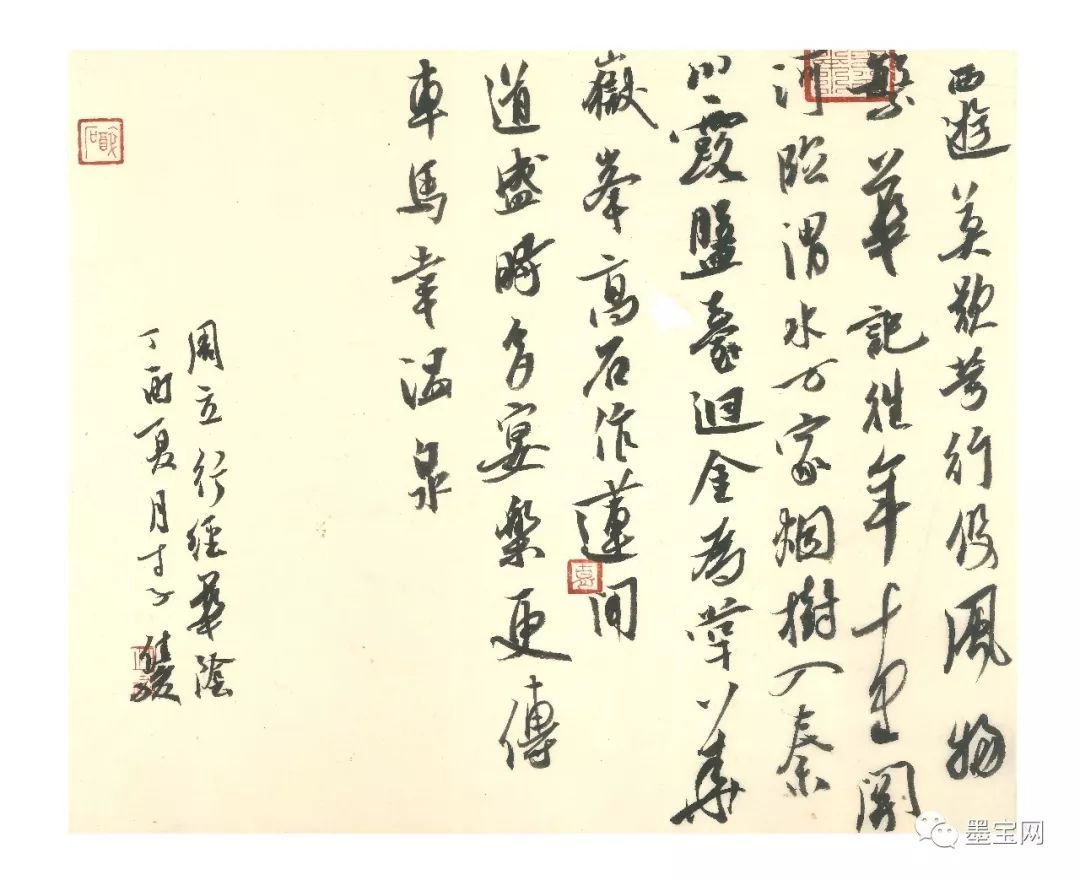 西遊莫歎苦行役風物
繁華記往年十里關
河臨渭水万家烟樹入秦
川露盤臺迴金為掌華
嶽峯高石作蓮聞
道盛時多宴樂更傳
車馬幸温泉
周立行經華陰
丁酉夏月
袁
墨宝网